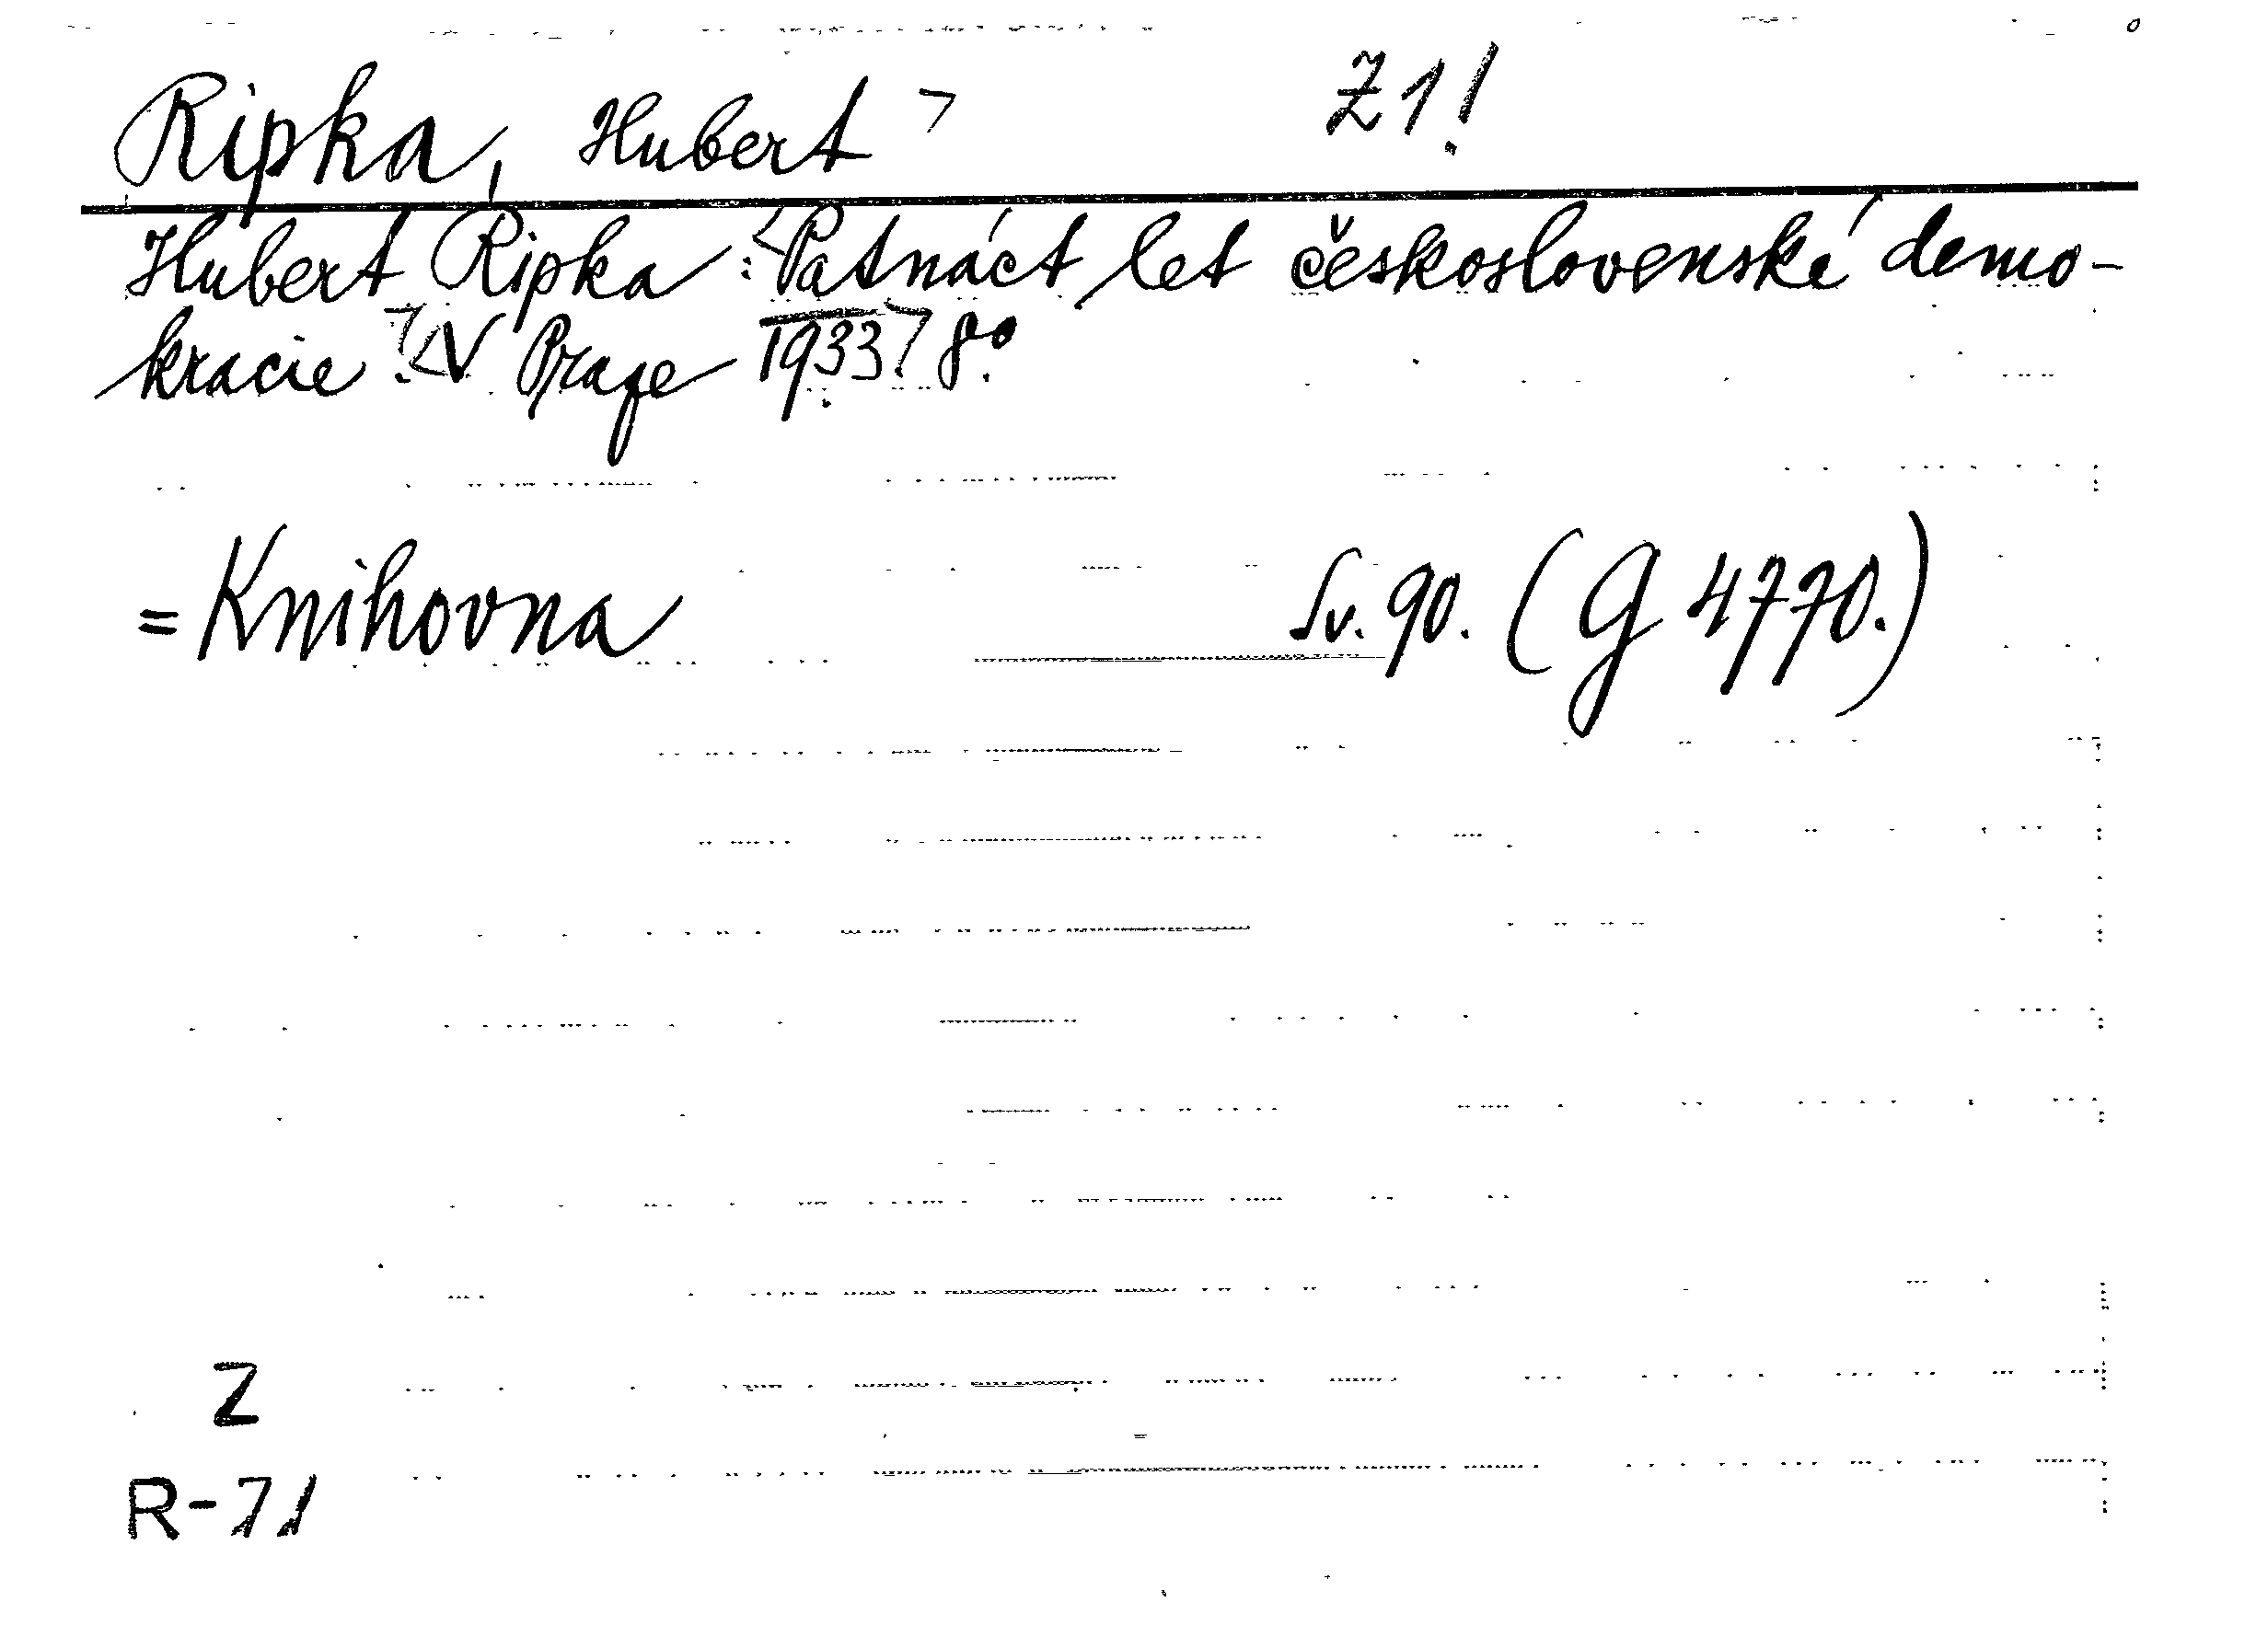 Ripka, Hubert Z1!
Hubert Ripka: Patnáct let československé demo-
kracie. V Praze 1933. 8°.
= Knihovna Sv. 90. (G 4770.)
Z
R-71